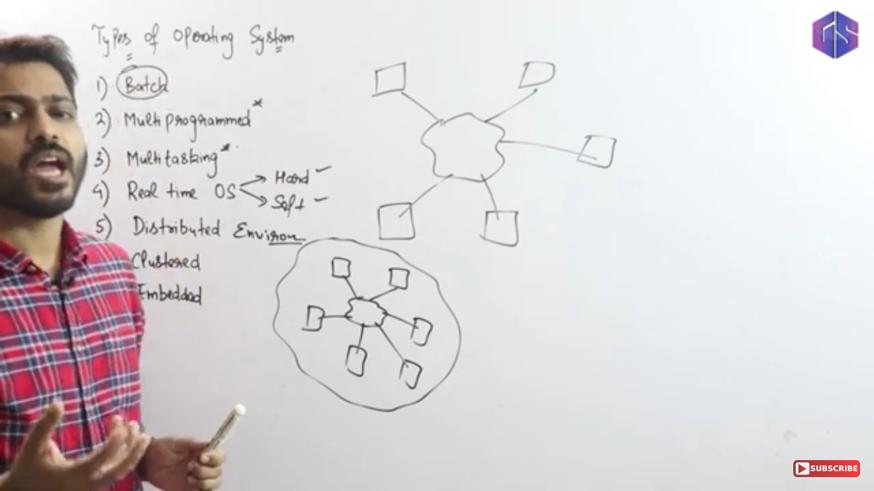 Types of Operating System
1) Batch
2) Multiprogrammed*
3) Multitasking*
4) Real time OS
Hard
Soft
5) Distributed Environ
Clustered
Embedded
SUBSCRIBE